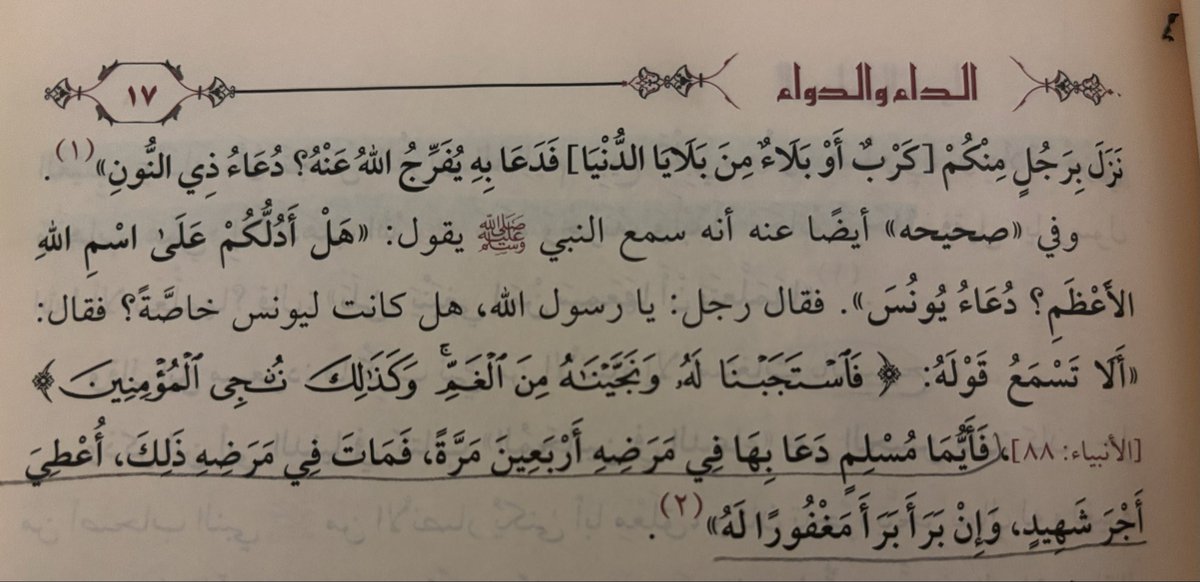 الداء والدواء ١٧
نَزَلَ بِرَجُلٍ مِنْكُمْ [كَرْبٌ أَوْ بَلَاءٌ مِنَ بَلَايَا الدُّنْيَا] فَدَعَا بِهِ يُفَرِّجُ اللهُ عَنْهُ؟ دُعَاءُ ذِي النُّونِ» (١).
وفي «صحيحه» أيضًا عنه أنه سمع النبي ﷺ يقول: «هَلْ أَدُلُّكُمْ عَلَىٰ اسْمِ اللهِ
الأَعْظَمِ؟ دُعَاءُ يُونُسَ». فقال رجل: يا رسول الله، هل كانت ليونس خاصَّةً؟ فقال:
«أَلَا تَسْمَعُ قَوْلَهُ: ﴿ فَٱسْتَجَبْنَا لَهُۥ وَنَجَّيْنَٰهُ مِنَ ٱلْغَمِّ ۚ وَكَذَٰلِكَ نُـۨجِى ٱلْمُؤْمِنِينَ ﴾
[الأنبياء: ٨٨]، فَأَيُّمَا مُسْلِمٍ دَعَا بِهَا فِي مَرَضِهِ أَرْبَعِينَ مَرَّةً، فَمَاتَ فِي مَرَضِهِ ذَلِكَ، أُعْطِيَ
أَجْرَ شَهِيدٍ، وَإِنْ بَرَأَ بَرَأَ مَغْفُورًا لَهُ» (٢).